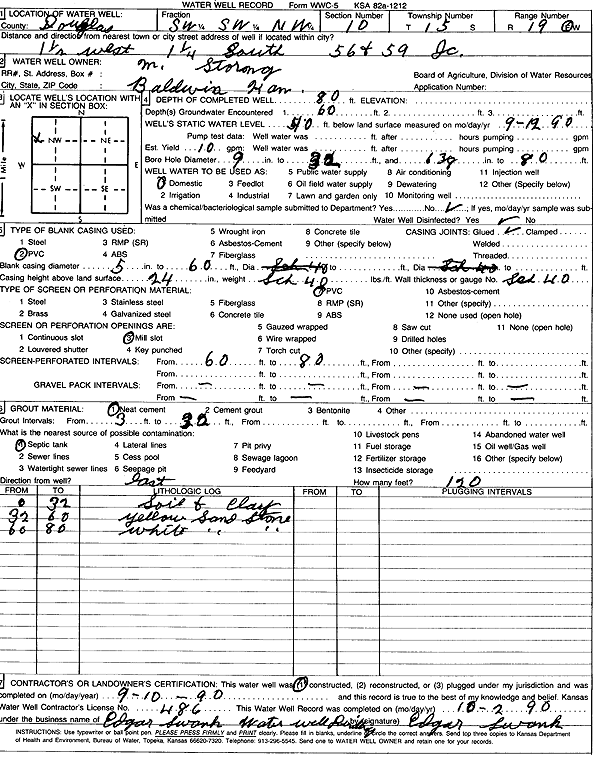 WATER WELL RECORD Form WWC-5 KSA 82a-1212
1 LOCATION OF WATER WELL: Fraction Section Number Township Number Range Number
County: Douglas SW ¼ SW ¼ NW ¼ 10 T 15 S R 19 E/W
Distance and direction from nearest town or city street address of well if located within city?
1½ west 1¼ South 56 & 59 Jc.
2 WATER WELL OWNER: M. Strong
RR#, St. Address, Box # : Board of Agriculture, Division of Water Resources
City, State, ZIP Code : Baldwin Kan. Application Number:
3 LOCATE WELL'S LOCATION WITH AN "X" IN SECTION BOX:
N
X NW NE
W E
SW SE
S
Mile
4 DEPTH OF COMPLETED WELL 80 ft. ELEVATION:
Depth(s) Groundwater Encountered 1. 60 ft. 2. ft. 3. ft.
WELL'S STATIC WATER LEVEL 40 ft. below land surface measured on mo/day/yr 9-12-90
Pump test data: Well water was ft. after hours pumping gpm
Est. Yield 10 gpm: Well water was ft. after hours pumping gpm
Bore Hole Diameter 9 in. to 32 ft., and 6 3/8 in. to 80 ft.
WELL WATER TO BE USED AS: 5 Public water supply 8 Air conditioning 11 Injection well
1 Domestic 3 Feedlot 6 Oil field water supply 9 Dewatering 12 Other (Specify below)
2 Irrigation 4 Industrial 7 Lawn and garden only 10 Monitoring well
Was a chemical/bacteriological sample submitted to Department? Yes No ✓ ; If yes, mo/day/yr sample was submitted
Water Well Disinfected? Yes ✓ No
5 TYPE OF BLANK CASING USED: 5 Wrought iron 8 Concrete tile CASING JOINTS: Glued ✓ Clamped
1 Steel 3 RMP (SR) 6 Asbestos-Cement 9 Other (specify below) Welded
2 PVC 4 ABS 7 Fiberglass Threaded
Blank casing diameter 5 in. to 60 ft., Dia Sch 40 in. to ft., Dia Sch 40 in. to ft.
Casing height above land surface 24 in., weight Sch 40 lbs./ft. Wall thickness or gauge No. Sch 40
TYPE OF SCREEN OR PERFORATION MATERIAL: 7 PVC 10 Asbestos-cement
1 Steel 3 Stainless steel 5 Fiberglass 8 RMP (SR) 11 Other (specify)
2 Brass 4 Galvanized steel 6 Concrete tile 9 ABS 12 None used (open hole)
SCREEN OR PERFORATION OPENINGS ARE: 5 Gauzed wrapped 8 Saw cut 11 None (open hole)
1 Continuous slot 3 Mill slot 6 Wire wrapped 9 Drilled holes
2 Louvered shutter 4 Key punched 7 Torch cut 10 Other (specify)
SCREEN-PERFORATED INTERVALS: From 60 ft. to 80 ft., From ft. to ft.
From ft. to ft., From ft. to ft.
GRAVEL PACK INTERVALS: From — ft. to — ft., From — ft. to — ft.
From — ft. to — ft., From — ft. to — ft.
6 GROUT MATERIAL: 1 Neat cement 2 Cement grout 3 Bentonite 4 Other
Grout Intervals: From 3 ft. to 32 ft., From ft. to ft., From ft. to ft.
What is the nearest source of possible contamination: 10 Livestock pens 14 Abandoned water well
1 Septic tank 4 Lateral lines 7 Pit privy 11 Fuel storage 15 Oil well/Gas well
2 Sewer lines 5 Cess pool 8 Sewage lagoon 12 Fertilizer storage 16 Other (specify below)
3 Watertight sewer lines 6 Seepage pit 9 Feedyard 13 Insecticide storage
Direction from well? East How many feet? 120
FROM TO LITHOLOGIC LOG FROM TO PLUGGING INTERVALS
0 32 Soil & Clay
32 60 yellow Sand Stone
60 80 white " "
7 CONTRACTOR'S OR LANDOWNER'S CERTIFICATION: This water well was (1) constructed, (2) reconstructed, or (3) plugged under my jurisdiction and was
completed on (mo/day/year) 9-10-90 and this record is true to the best of my knowledge and belief. Kansas
Water Well Contractor's License No. 486 This Water Well Record was completed on (mo/day/yr) 10-2-90
under the business name of Edgar Swank Water well by (signature) Edgar Swank
INSTRUCTIONS: Use typewriter or ball point pen. PLEASE PRESS FIRMLY and PRINT clearly. Please fill in blanks, underline or circle the correct answers. Send top three copies to Kansas Department
of Health and Environment, Bureau of Water, Topeka, Kansas 66620-7320. Telephone: 913-296-5545. Send one to WATER WELL OWNER and retain one for your records.